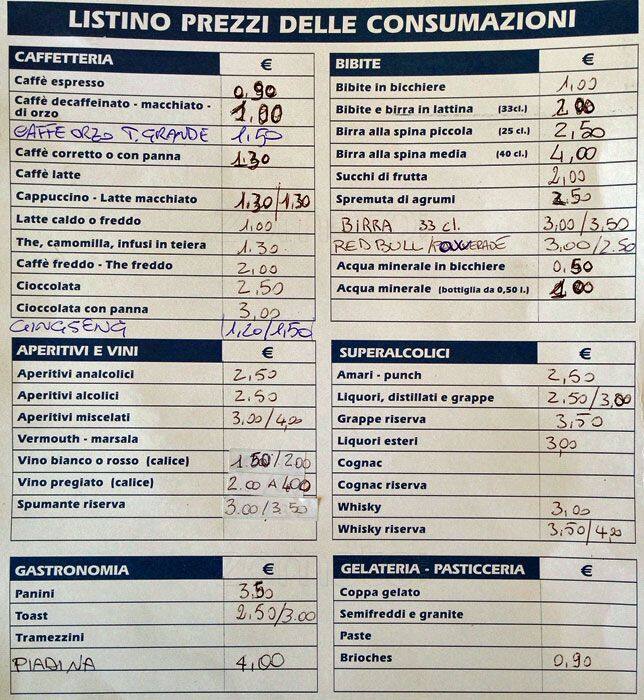 LISTINO PREZZI DELLE CONSUMAZIONI
CAFFETTERIA €
Caffè espresso 0,90
Caffè decaffeinato - macchiato -
di orzo 1,00
CAFFE ORZO T. GRANDE 1,50
Caffè corretto o con panna 1.30
Caffè latte
Cappuccino - Latte macchiato 1.30/1,30
Latte caldo o freddo 1.00
The, camomilla, infusi in teiera 1.30
Caffè freddo - The freddo 2,00
Cioccolata 2,50
Cioccolata con panna 3,00
GINGSENG 1,20/1,50
BIBITE €
Bibite in bicchiere 1,00
Bibite e birra in lattina (33cl.) 2,00
Birra alla spina piccola (25 cl.) 2,50
Birra alla spina media (40 cl.) 4,00
Succhi di frutta 2,00
Spremuta di agrumi 2,50
BIRRA 33 cl. 3,00/3,50
REDBULL/POWERADE 3,00/2.50
Acqua minerale in bicchiere 0,50
Acqua minerale (bottiglia da 0,50 l.) 1,00
APERITIVI E VINI €
Aperitivi analcolici 2,50
Aperitivi alcolici 2.50
Aperitivi miscelati 3,00/4,00
Vermouth - marsala
Vino bianco o rosso (calice) 1.50/2.00
Vino pregiato (calice) 2.00 A 4.00
Spumante riserva 3.00/3,50
SUPERALCOLICI €
Amari - punch 2,50
Liquori, distillati e grappe 2.50/3,00
Grappe riserva 3,50
Liquori esteri 3,00
Cognac
Cognac riserva
Whisky 3,00
Whisky riserva 3,50/4,20
GASTRONOMIA €
Panini 3,50
Toast 2.50/3.00
Tramezzini
PIADINA 4,00
GELATERIA - PASTICCERIA €
Coppa gelato
Semifreddi e granite
Paste
Brioches 0,90